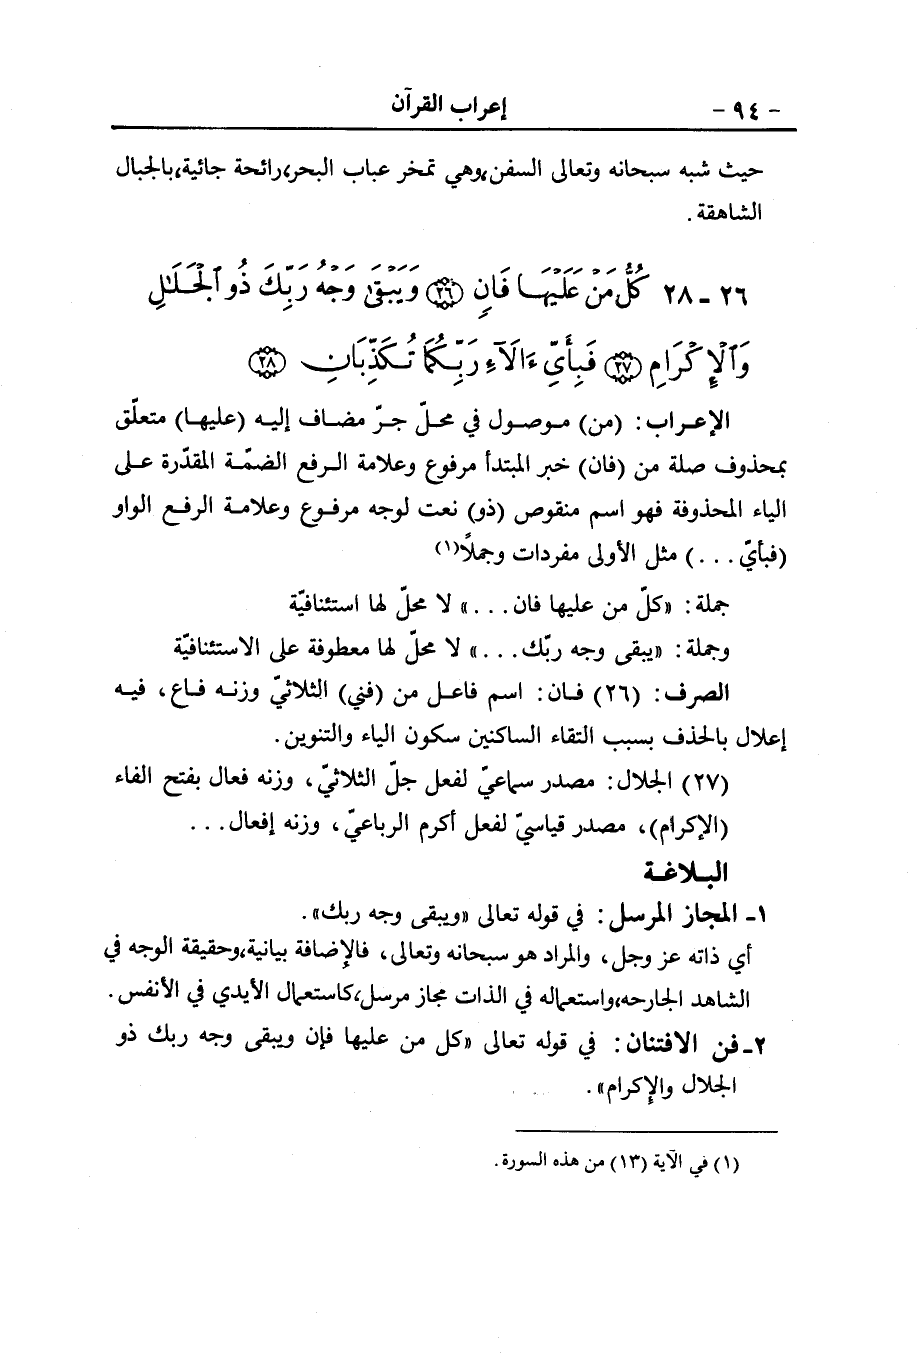 - ٩٤ - إعراب القرآن
حيث شبه سبحانه وتعالى السفن،وهي تمخر عباب البحر،رائحة جائية،بالجبال
الشاهقة .
٢٦ - ٢٨ كُلُّ مَنْ عَلَيْهَا فَانٍ ﴿٢٦﴾ وَيَبْقَىٰ وَجْهُ رَبِّكَ ذُو ٱلْجَلَٰلِ
وَٱلْإِكْرَامِ ﴿٢٧﴾ فَبِأَيِّ ءَالَآءِ رَبِّكُمَا تُكَذِّبَانِ ﴿٢٨﴾
الإعراب : (من) موصول في محلّ جرّ مضاف إليه (عليها) متعلّق
بمحذوف صلة من (فان) خبر المبتدأ مرفوع وعلامة الرفع الضمّة المقدّرة على
الياء المحذوفة فهو اسم منقوص (ذو) نعت لوجه مرفوع وعلامة الرفع الواو
(فبأيّ . . .) مثل الأولى مفردات وجملًا(١)
جملة : «كلّ من عليها فان . . .» لا محلّ لها استئنافيّة
وجملة : «يبقى وجه ربّك . . .» لا محلّ لها معطوفة على الاستئنافيّة
الصرف : (٢٦) فان : اسم فاعل من (فني) الثلاثيّ وزنه فاع ، فيه
إعلال بالحذف بسبب التقاء الساكنين سكون الياء والتنوين .
(٢٧) الجلال : مصدر سماعيّ لفعل جلّ الثلاثيّ ، وزنه فعال بفتح الفاء
(الإكرام) ، مصدر قياسيّ لفعل أكرم الرباعيّ ، وزنه إفعال . . .
البلاغة
١- المجاز المرسل : في قوله تعالى «ويبقى وجه ربك» .
أي ذاته عز وجل ، والمراد هو سبحانه وتعالى ، فالإضافة بيانية،وحقيقة الوجه في
الشاهد الجارحه،واستعماله في الذات مجاز مرسل،كاستعمال الأيدي في الأنفس .
٢- فن الافتنان : في قوله تعالى «كل من عليها فإن ويبقى وجه ربك ذو
الجلال والإكرام» .
(١) في الآية (١٣) من هذه السورة .